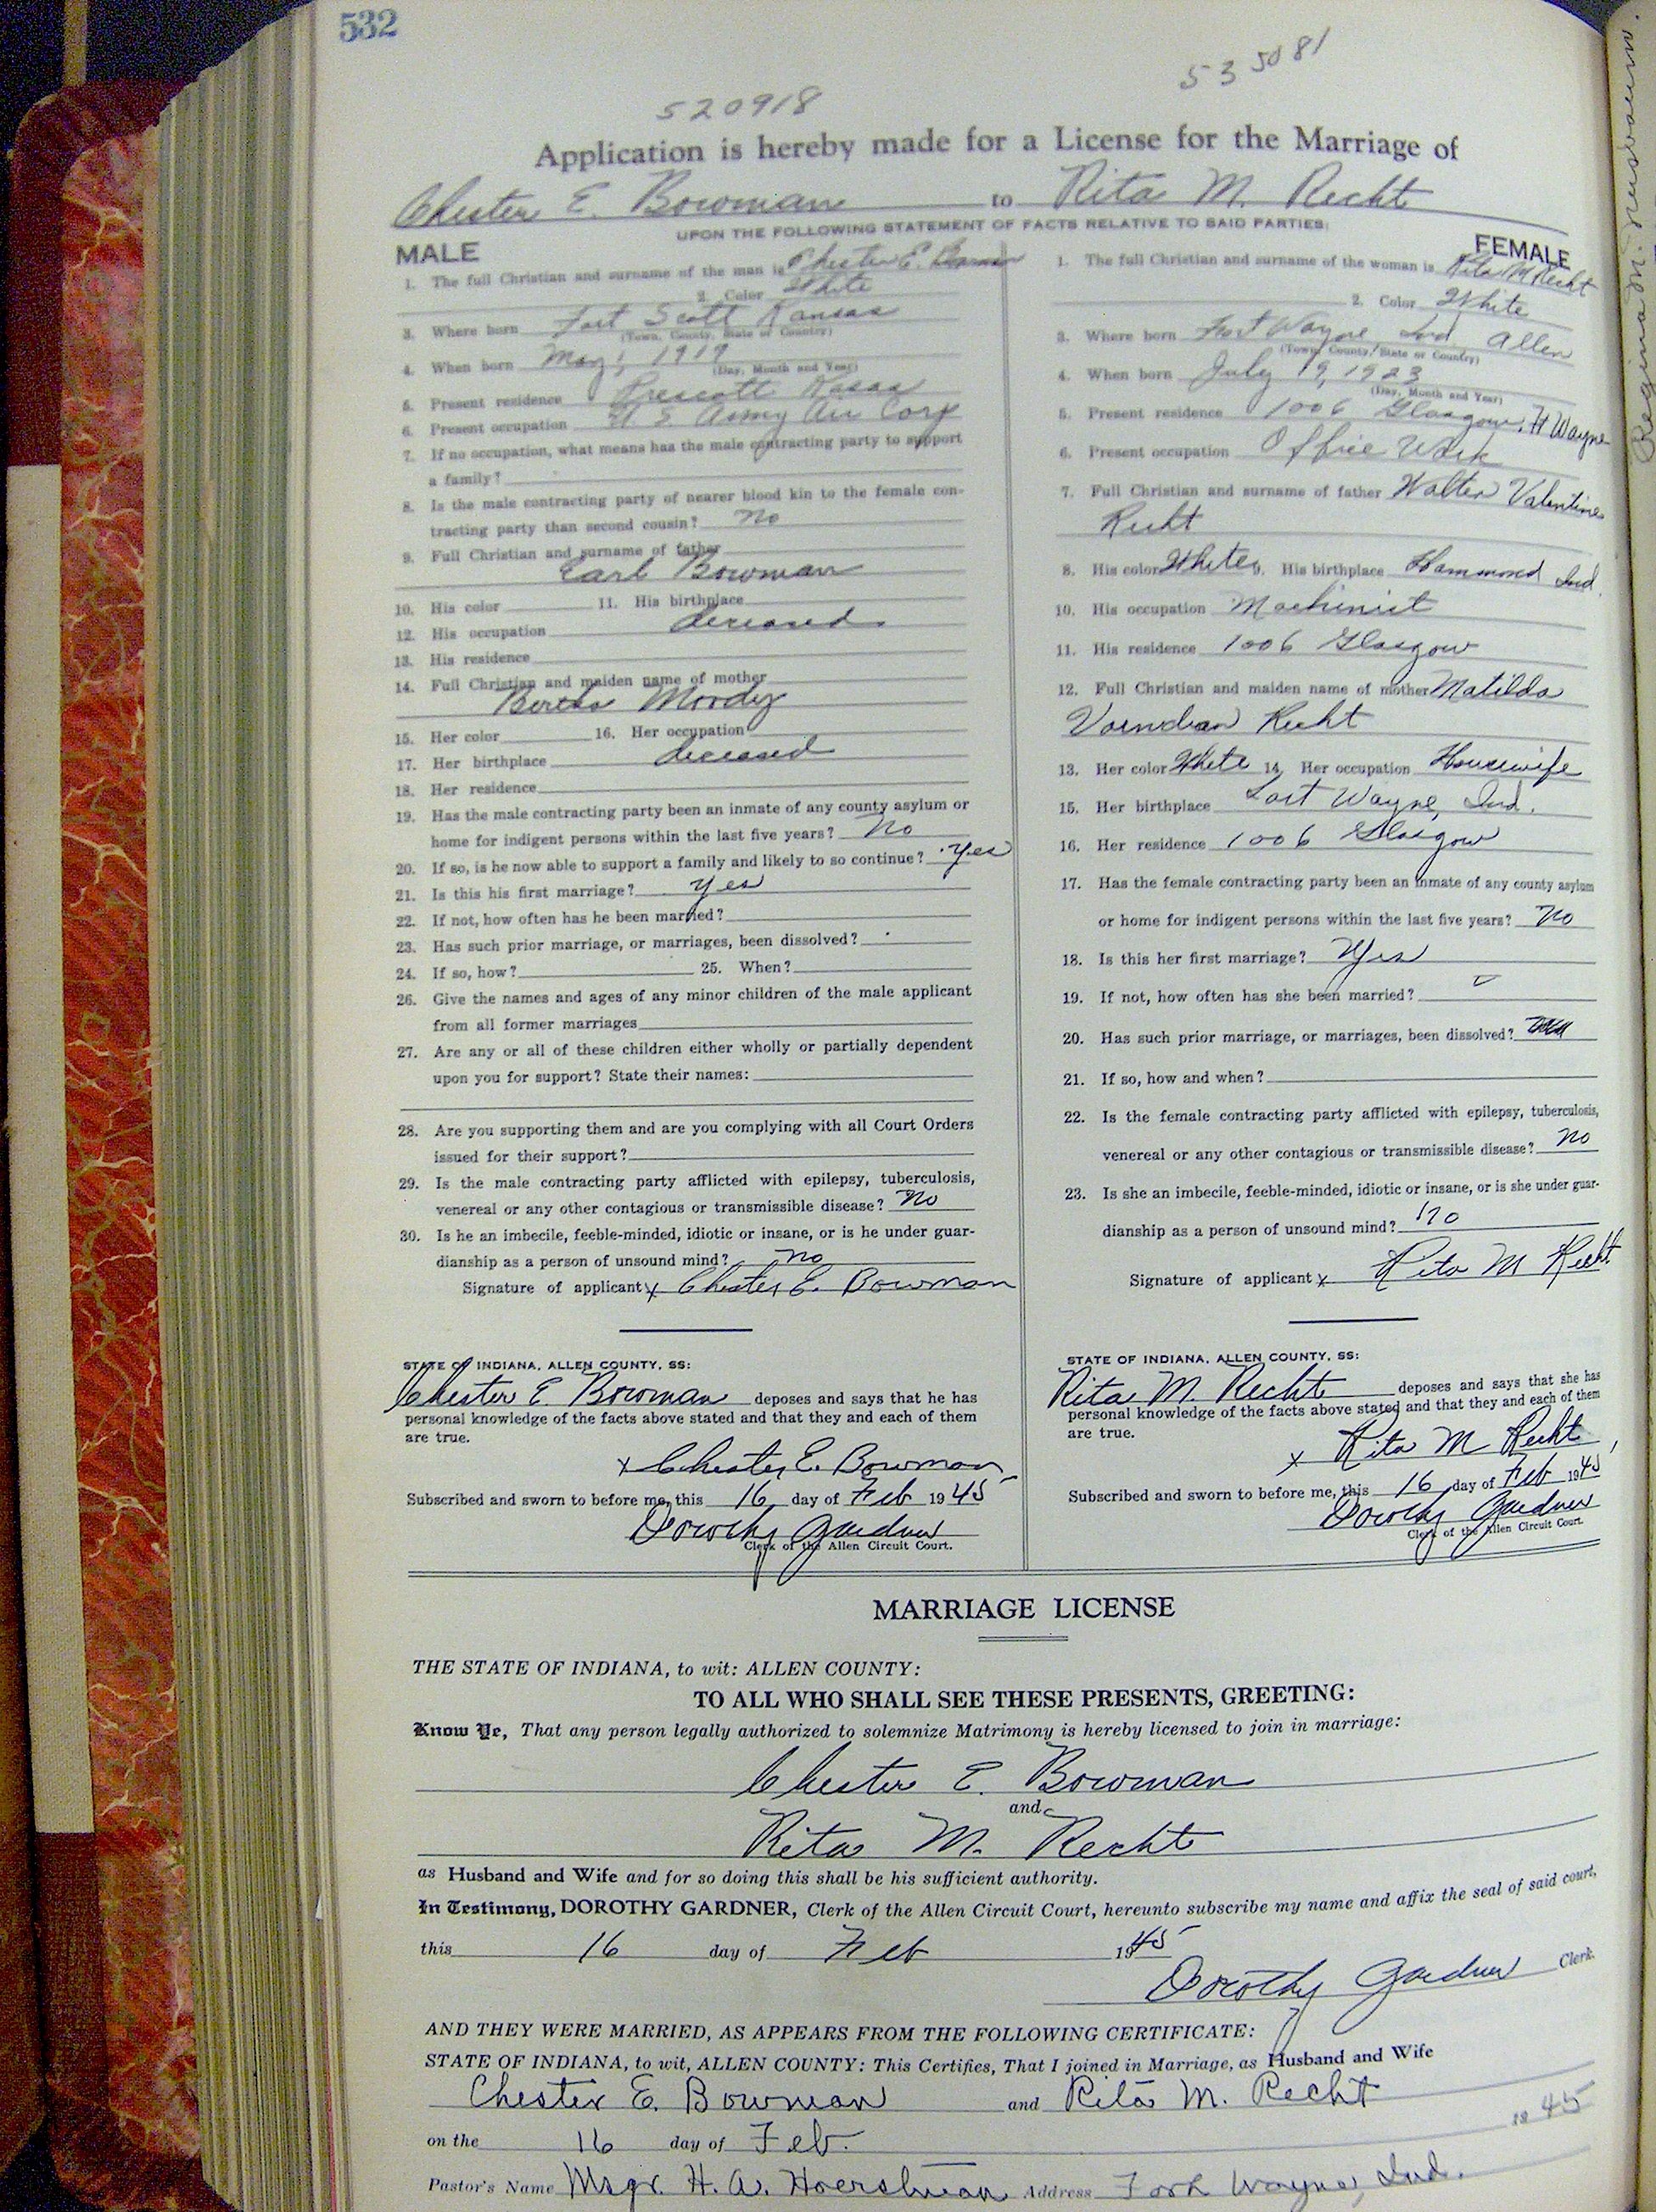 532
535081
520918
Application is hereby made for a License for the Marriage of
Chester E. Bowman to Rita M. Recht
UPON THE FOLLOWING STATEMENT OF FACTS RELATIVE TO SAID PARTIES:
MALE
1. The full Christian and surname of the man is Chester E. Bowman
2. Color White
3. Where born Fort Scott Kansas
(Town, County, State or Country)
4. When born May 1, 1919
(Day, Month and Year)
5. Present residence Prescott Kasas
6. Present occupation U. S. Army Air Corp
7. If no occupation, what means has the male contracting party to support
a family?
8. Is the male contracting party of nearer blood kin to the female con-
tracting party than second cousin? no
9. Full Christian and surname of father
Earl Bowman
10. His color 11. His birthplace
12. His occupation deceased
13. His residence
14. Full Christian and maiden name of mother
Bertha Moody
15. Her color 16. Her occupation
17. Her birthplace deceased
18. Her residence
19. Has the male contracting party been an inmate of any county asylum or
home for indigent persons within the last five years? no
20. If so, is he now able to support a family and likely to so continue? yes
21. Is this his first marriage? yes
22. If not, how often has he been married?
23. Has such prior marriage, or marriages, been dissolved?
24. If so, how? 25. When?
26. Give the names and ages of any minor children of the male applicant
from all former marriages
27. Are any or all of these children either wholly or partially dependent
upon you for support? State their names:
28. Are you supporting them and are you complying with all Court Orders
issued for their support?
29. Is the male contracting party afflicted with epilepsy, tuberculosis,
venereal or any other contagious or transmissible disease? no
30. Is he an imbecile, feeble-minded, idiotic or insane, or is he under guar-
dianship as a person of unsound mind? no
Signature of applicant x Chester E. Bowman
STATE OF INDIANA, ALLEN COUNTY, SS:
Chester E. Bowman deposes and says that he has
personal knowledge of the facts above stated and that they and each of them
are true.
x Chester E. Bowman
Subscribed and sworn to before me, this 16 day of Feb 1945
Dorothy Gardner
Clerk of the Allen Circuit Court.
FEMALE
1. The full Christian and surname of the woman is Rita M Recht
2. Color White
3. Where born Fort Wayne Ind Allen
(Town, County, State or Country)
4. When born July 19, 1923
(Day, Month and Year)
5. Present residence 1006 Glasgow, Ft Wayne
6. Present occupation Office Work
7. Full Christian and surname of father Walter Valentine
Recht
8. His color White 9. His birthplace Hammond Ind.
10. His occupation Machinist
11. His residence 1006 Glasgow
12. Full Christian and maiden name of mother Matilda
Recht
13. Her color White 14. Her occupation Housewife
15. Her birthplace Fort Wayne, Ind.
16. Her residence 1006 Glasgow
17. Has the female contracting party been an inmate of any county asylum
or home for indigent persons within the last five years? no
18. Is this her first marriage? Yes
19. If not, how often has she been married?
20. Has such prior marriage, or marriages, been dissolved?
21. If so, how and when?
22. Is the female contracting party afflicted with epilepsy, tuberculosis,
venereal or any other contagious or transmissible disease? no
23. Is she an imbecile, feeble-minded, idiotic or insane, or is she under guar-
dianship as a person of unsound mind? no
Signature of applicant x Rita M Recht
STATE OF INDIANA, ALLEN COUNTY, SS:
Rita M. Recht deposes and says that she has
personal knowledge of the facts above stated and that they and each of them
are true.
x Rita M Recht
Subscribed and sworn to before me, this 16 day of Feb 1945
Dorothy Gardner
Clerk of the Allen Circuit Court.
MARRIAGE LICENSE
THE STATE OF INDIANA, to wit: ALLEN COUNTY:
TO ALL WHO SHALL SEE THESE PRESENTS, GREETING:
Know Ye, That any person legally authorized to solemnize Matrimony is hereby licensed to join in marriage:
Chester E. Bowman
and
Rita M. Recht
as Husband and Wife and for so doing this shall be his sufficient authority.
In Testimony, DOROTHY GARDNER, Clerk of the Allen Circuit Court, hereunto subscribe my name and affix the seal of said court,
this 16 day of Feb 1945
Dorothy Gardner Clerk.
AND THEY WERE MARRIED, AS APPEARS FROM THE FOLLOWING CERTIFICATE:
STATE OF INDIANA, to wit, ALLEN COUNTY: This Certifies, That I joined in Marriage, as Husband and Wife
Chester E. Bowman and Rita M. Recht
on the 16 day of Feb. 1945
Pastor's Name Msgr. H. A. Hoerstman Address Fort Wayne, Ind.
Regina M. Nusbaum.